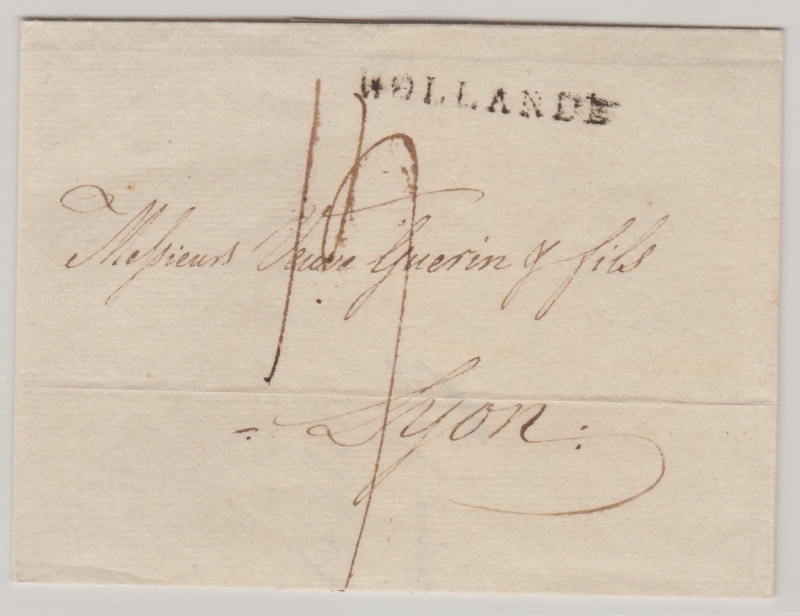 HOLLANDE
Messieurs Veuve Guerin & fils
Lyon.